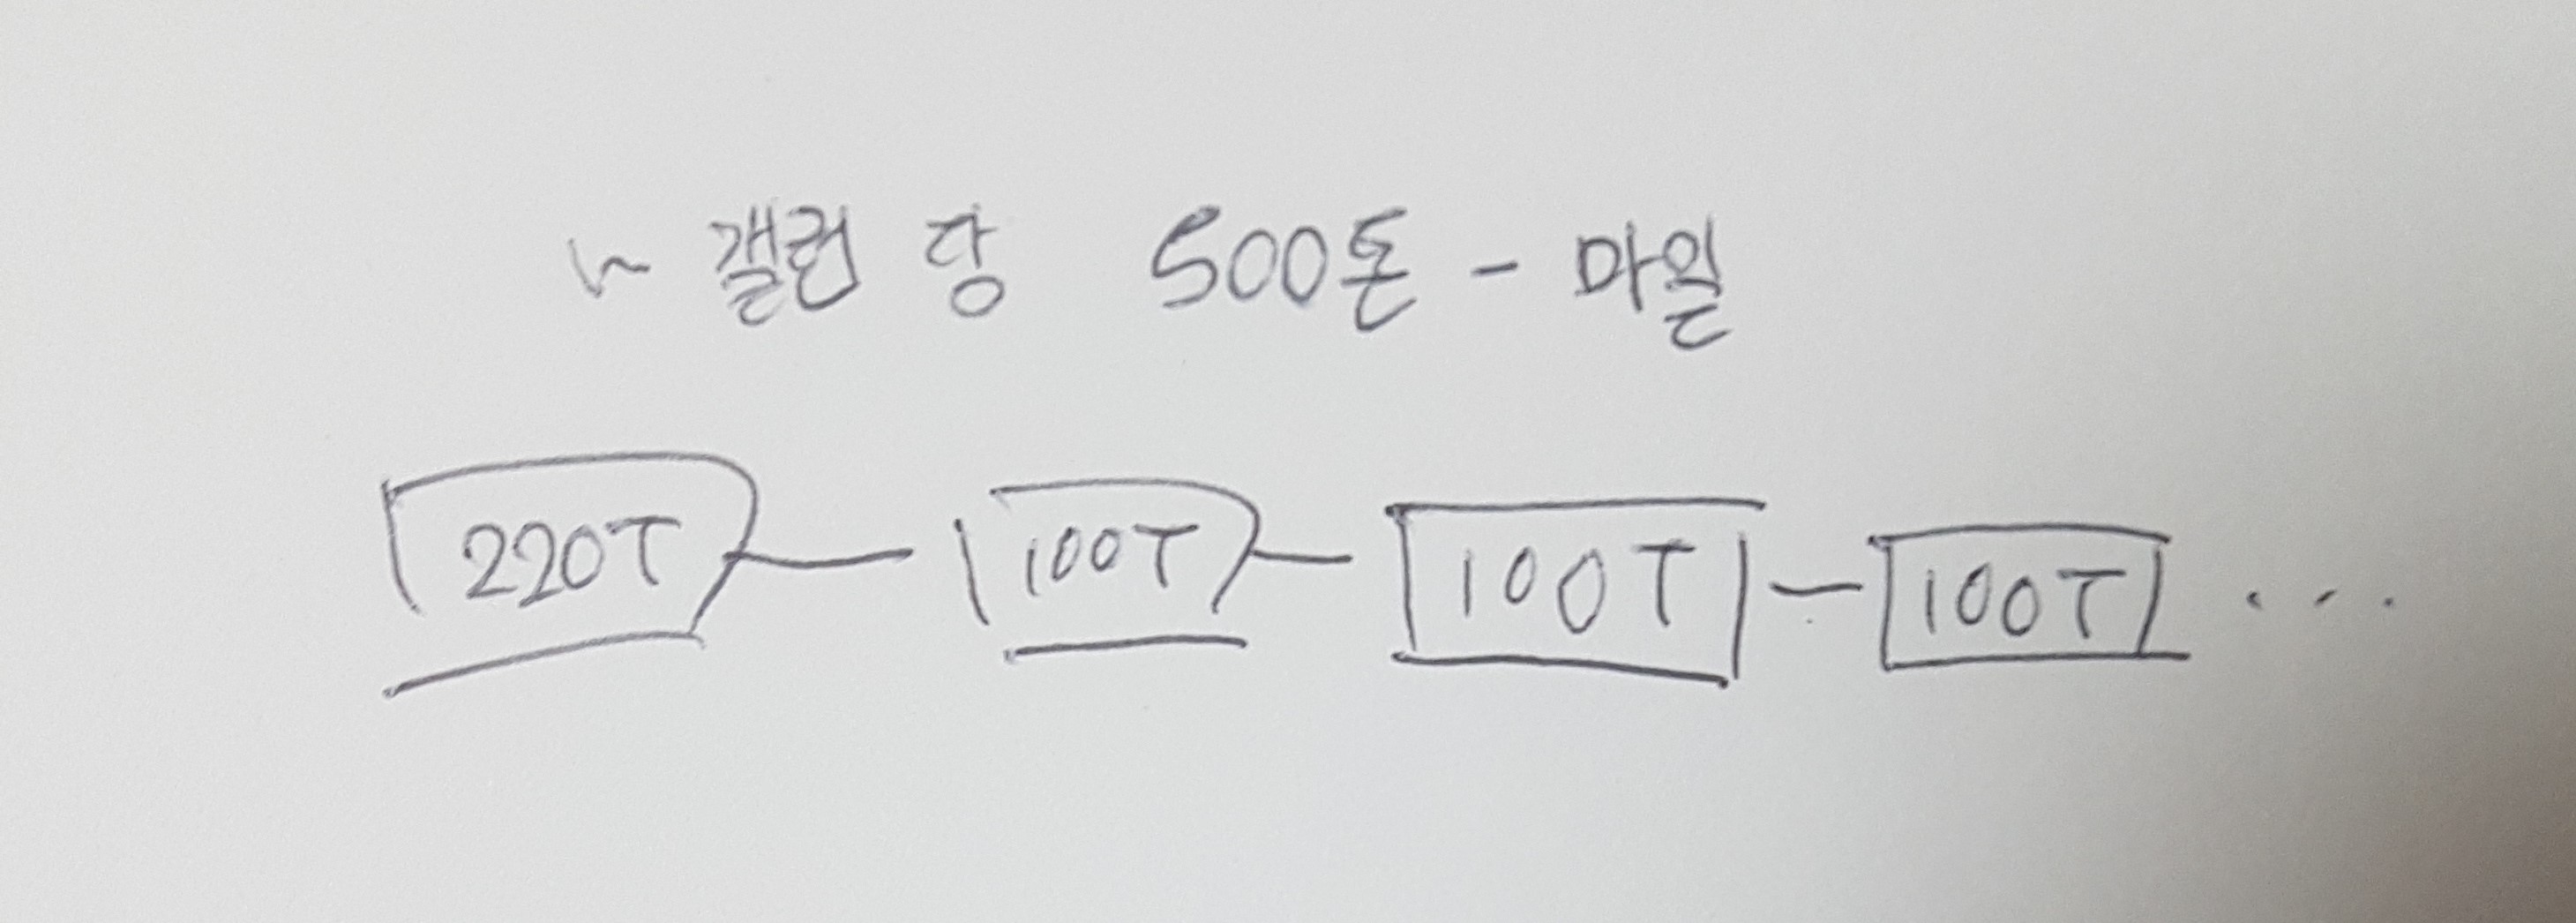 ~ 갤런 당 500톤 - 마일
220T - 100T - 100T - 100T ...